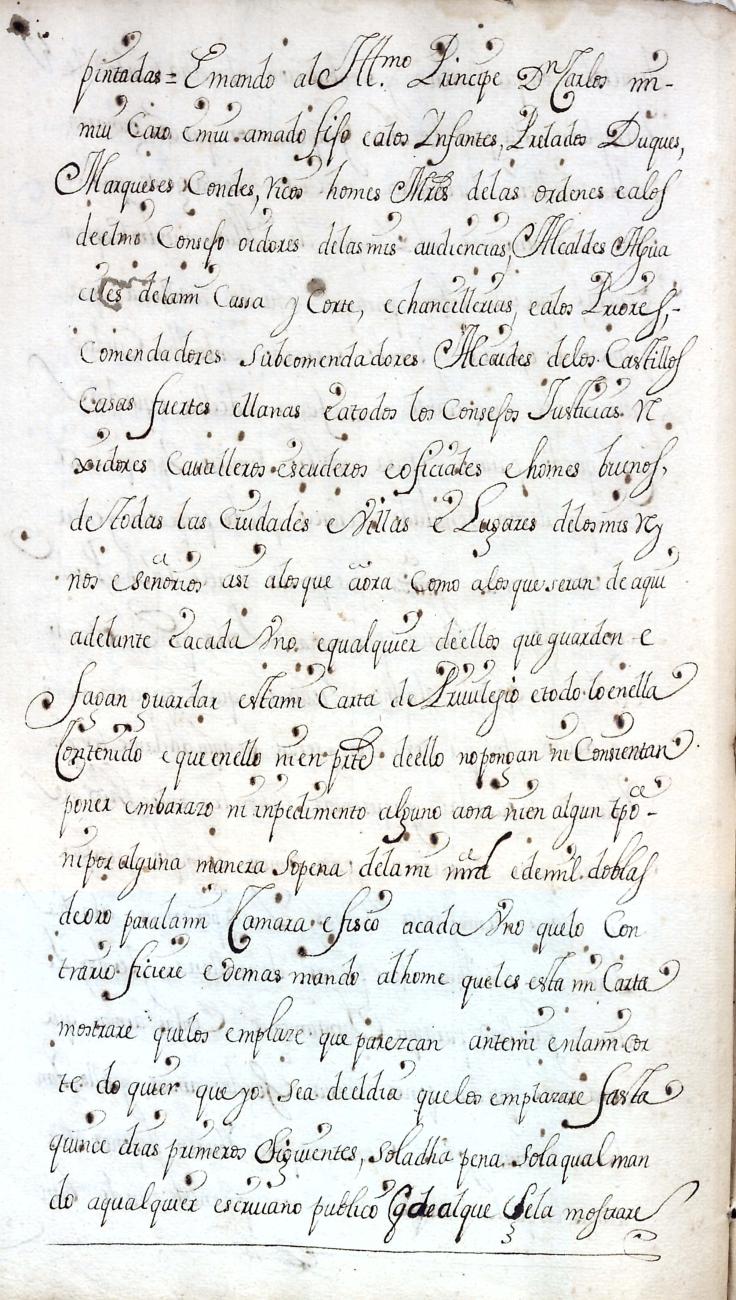 pintadas = E mando al Illmo. Principe Dn Carlos mi-
mui Caro emui amado fijo ealos Infantes, Prelados Duques,
Marqueses Condes, ricos homes Mres delas ordenes ealos
deelmi Consejo oidores delas mis audiencias, Alcaldes Algua
ciles delami Cassa y Corte, echancillerias, ealos Priores,-
Comendadores subcomendadores Alcaides delos Castillos
Casas fuertes ellanas eatodos los Consejos Justicias R
xidores Cavalleros escuderos eoficiales e homes buenos,
de todas las Ciudades e Villas e Lugares delos mis Rey
nos e señorios asi alosque aora Como alosque seran de aqui
adelante eacada Vno equalquier deellos que guarden e
fagan guardar esta mi Carta de Privilegio etodo loenella
Contenido eque enello nien pte deello nopongan ni Consientan
poner embarazo ni inpedimento alguno aora nien algun tpo-
nipor alguna manera sopena delami mrd edemil doblas
deoro paralami Camara e fisco acada Vno quelo Con
trario ficiere edemas mando alhome queles esta mi Carta
mostrare quelos emplaze que parezcan antemi enlami Cor
te do quier que yo sea deeldia quelos emplazare fasta
quince dias primeros Siguientes, soladha pena solaqual man
do aqualquier escrivano publico q dealque sela mostrare